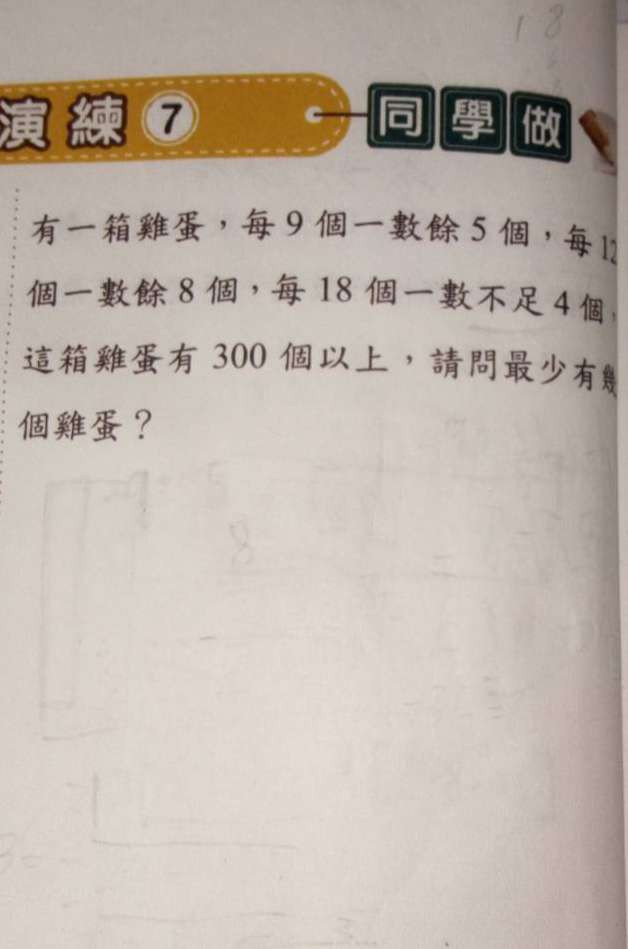 18
演練 7 同學做
有一箱雞蛋，每 9 個一數餘 5 個，每 12
個一數餘 8 個，每 18 個一數不足 4 個，
這箱雞蛋有 300 個以上，請問最少有幾
個雞蛋？
8